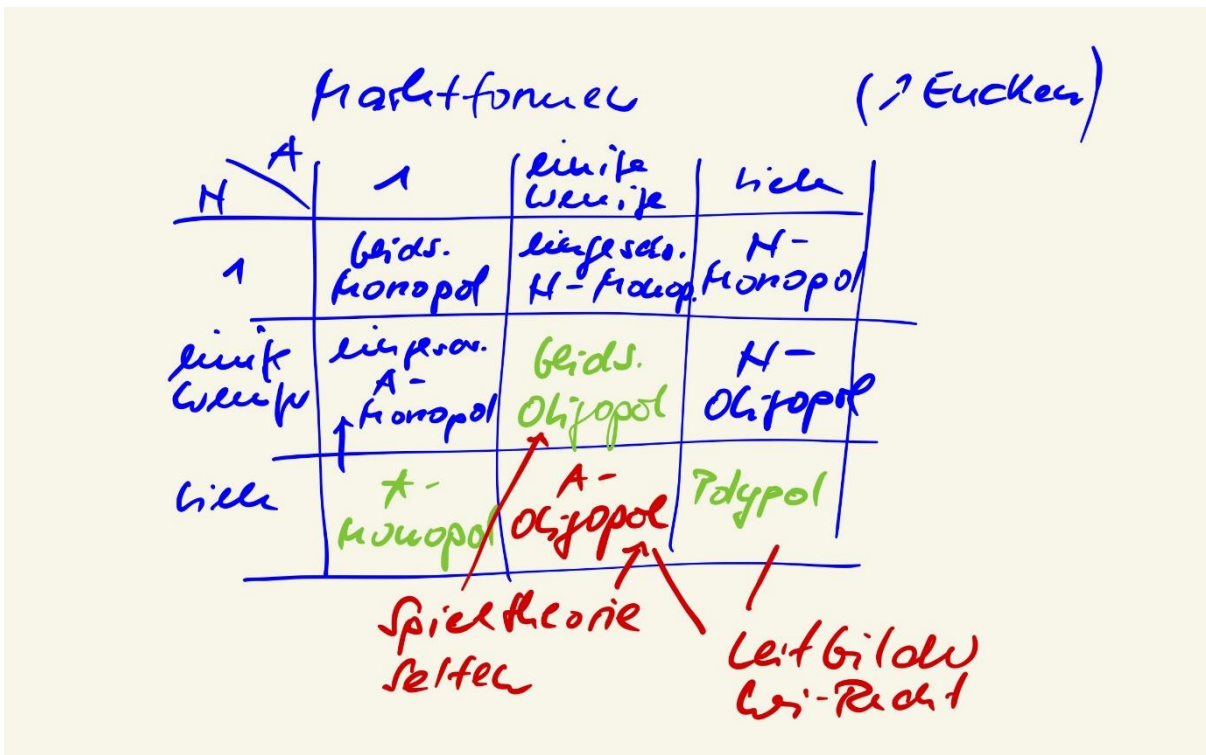 Marktformen (↗ Eucken)
A
N
1
einige
wenige
viele
1
beids.
Monopol
eingeschr.
N-Monop.
N-
Monopol
einige
wenige
eingeschr.
A-
Monopol
beids.
Oligopol
N-
Oligopol
viele
A-
Monopol
A-
Oligopol
Polypol
Spieltheorie
Selten
Leitbilder